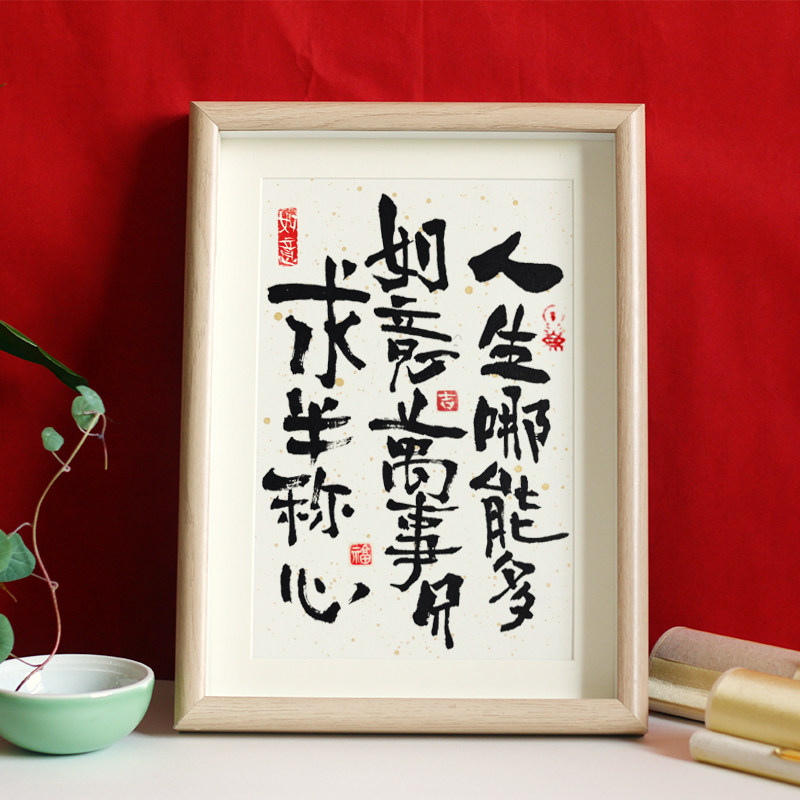 人生哪能多
如意萬事只
求半称心
如意
吉
福